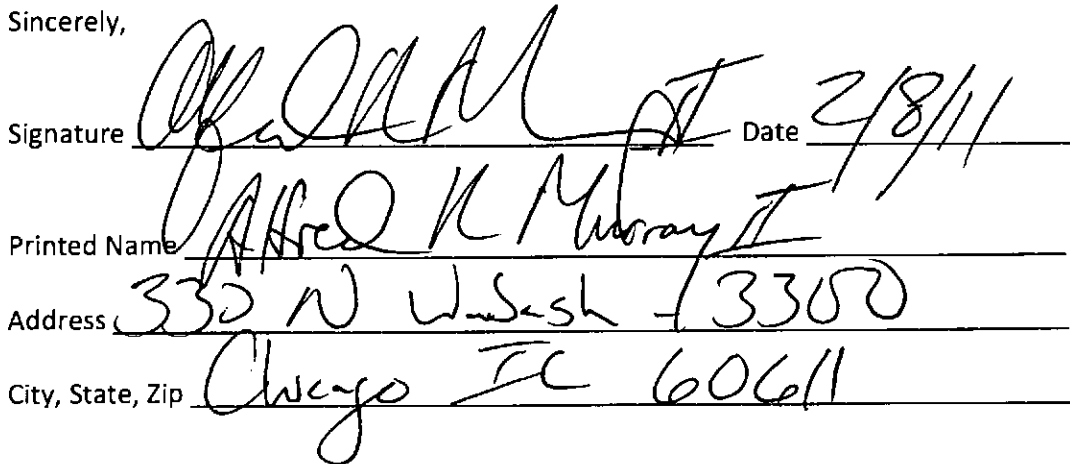 Sincerely,
Signature Alfred R M II Date 2/8/11
Printed Name Alfred R Murray II
Address 330 N Wabash - 3300
City, State, Zip Chicago IL 60611